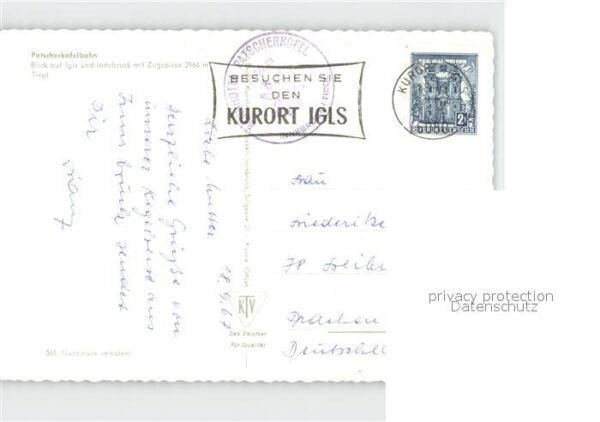 Patscherkofelbahn
Blick auf Igls und Innsbruck mit Zugspitze 2966 m
Tirol
BESUCHEN SIE
DEN
KURORT IGLS
PATSCHERKOFEL
KURORT IGLS
2
Liebe Mutter
18.9.67
Herzliche Grüße von
unserer Kegelreise aus
Innsbruck sendet
Dir
Franz
Frau
Friederike
78 Freibu
Deutschl
KTV
Das Zeichen
für Qualität
561 Nachdruck verboten
privacy protection
Datenschutz